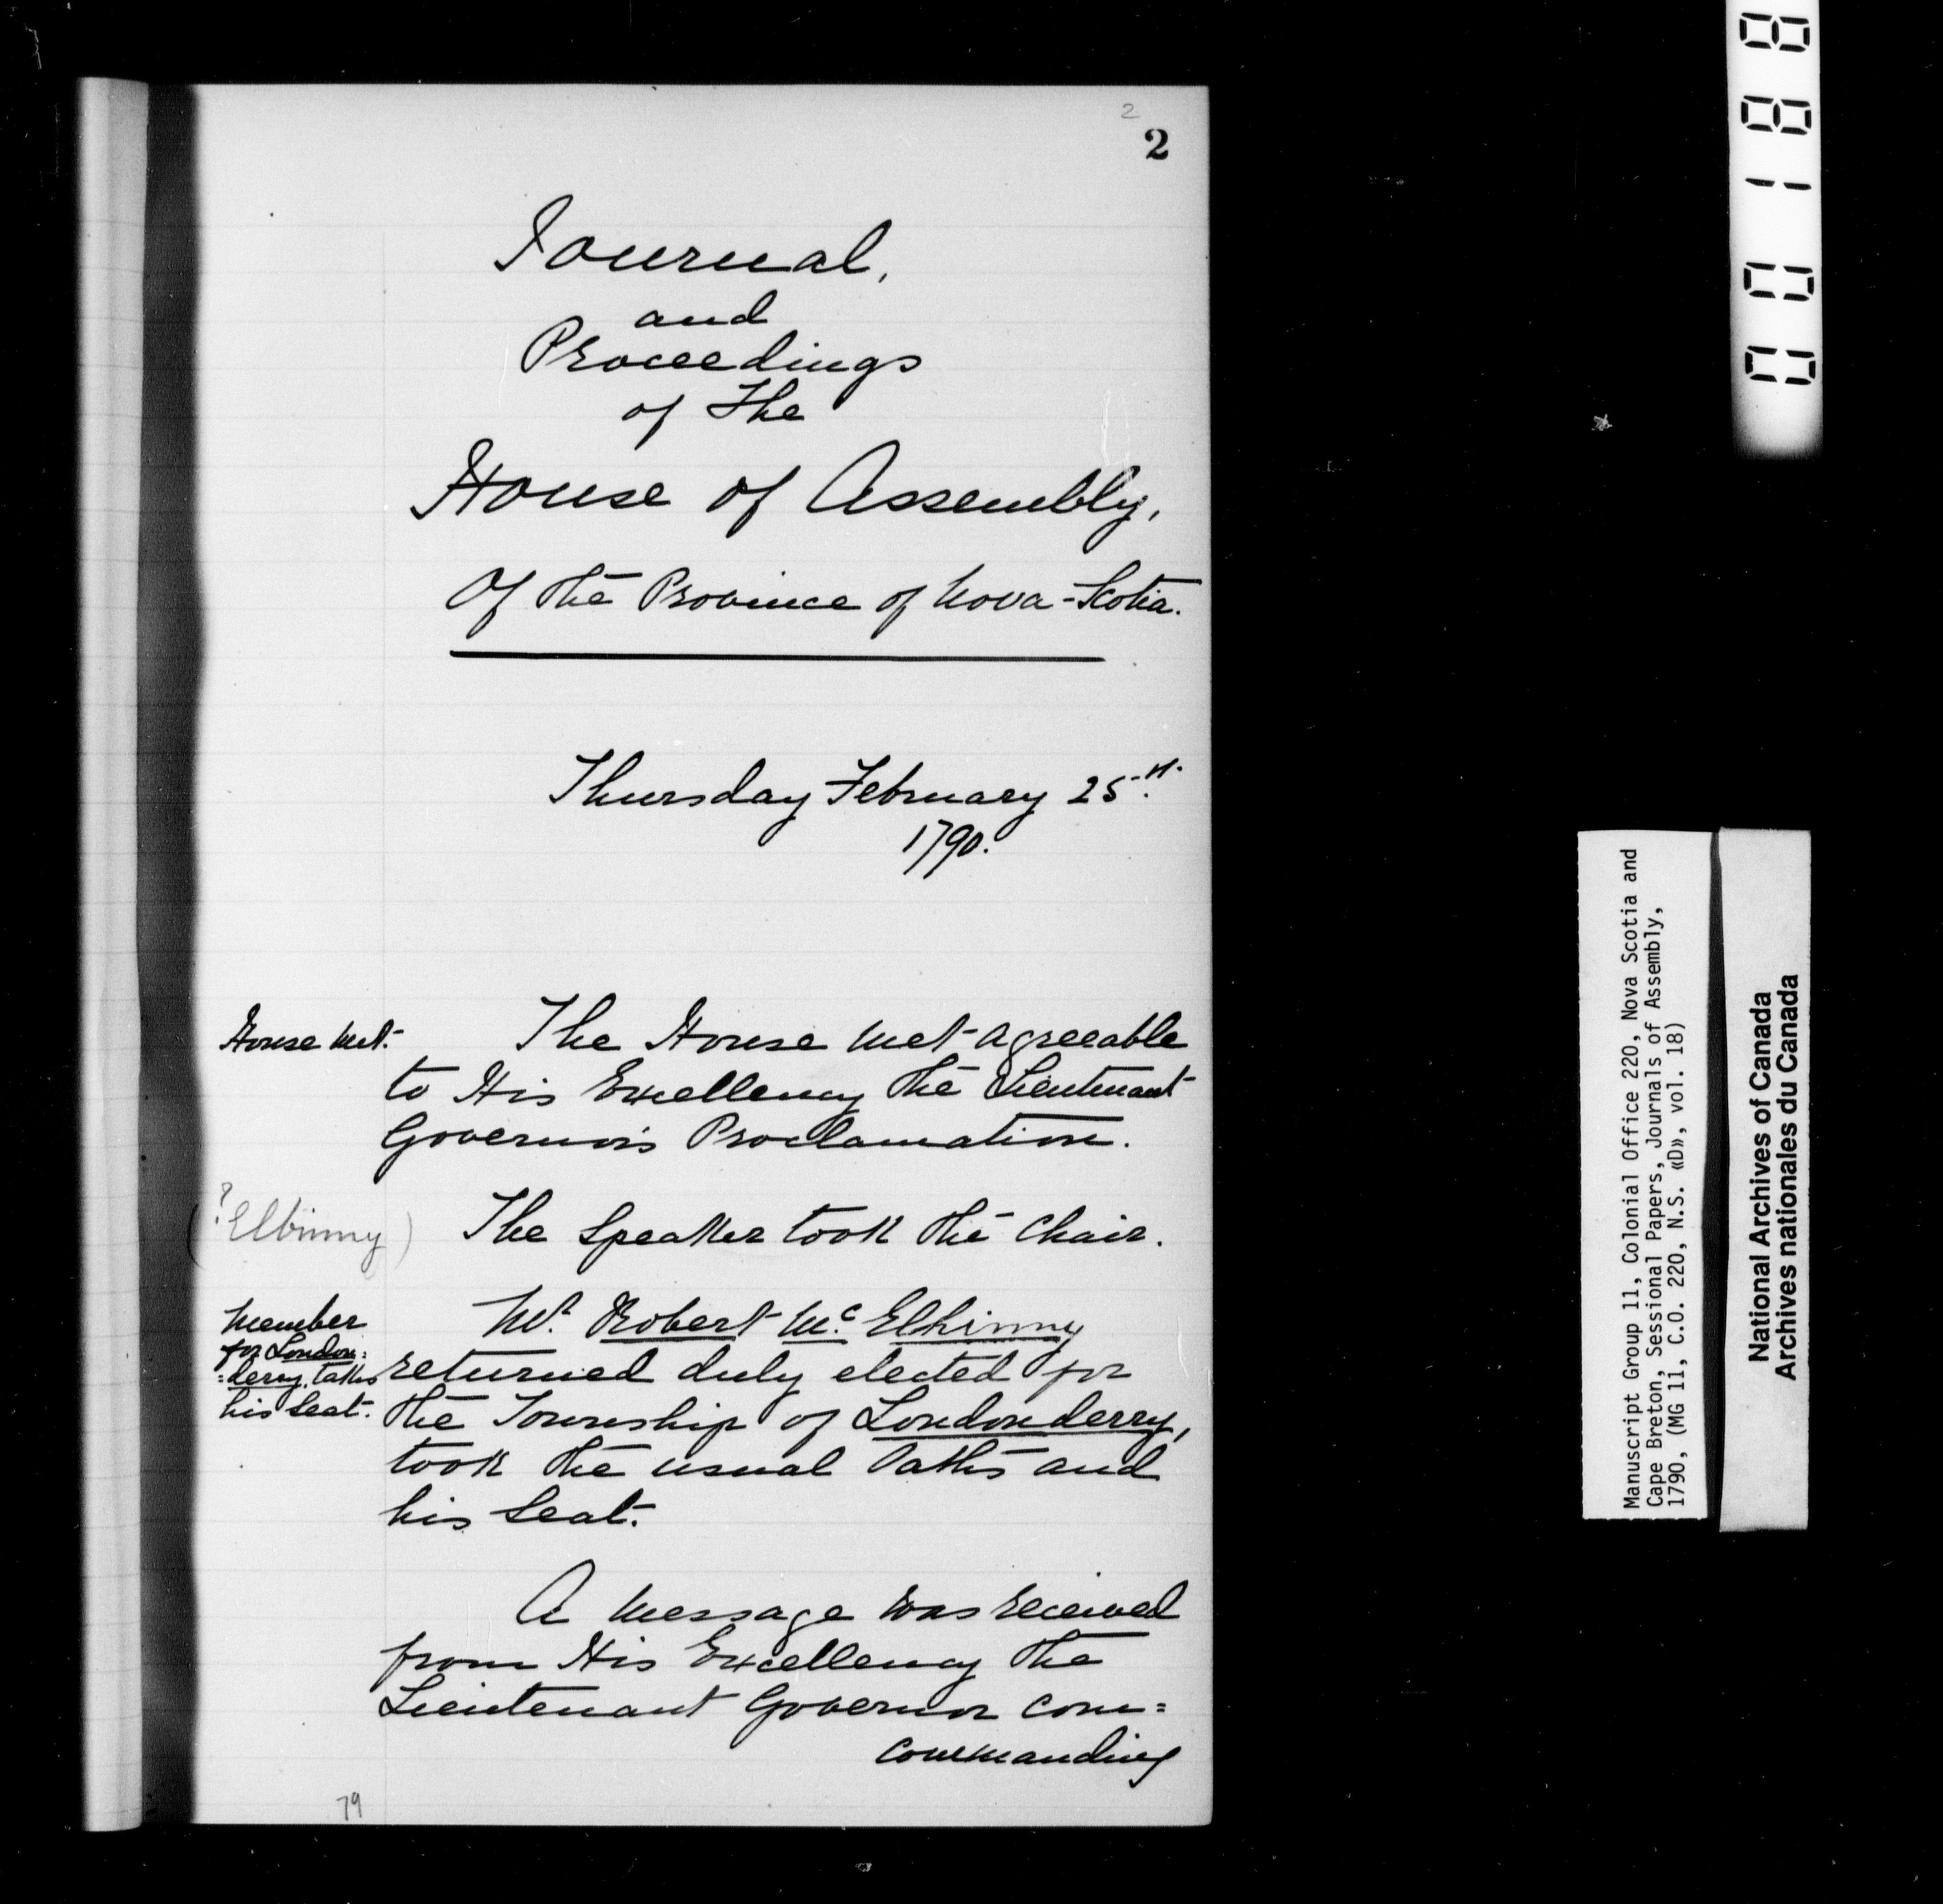 2
2
Journal,
and
Proceedings
of The
House of Assembly,
Of the Province of Nova-Scotia.
Thursday February 25th.
1790.
House met.
The House met agreeable
to His Excellency the Lieutenant
Governor's Proclamation.
(?Elbinny)
The Speaker took the Chair.
Member
for London=
=derry, takes
his Seat.
Mr. Robert Mc. Elhinny
returned duly elected for
the Township of Londonderry,
took the usual Oaths and
his Seat.
A Message was received
from His Excellency the
Lieutenant Governor com=
commanding
79
00188
Manuscript Group 11, Colonial Office 220, Nova Scotia and
Cape Breton, Sessional Papers, Journals of Assembly,
1790, (MG 11, C.O. 220, N.S. «D», vol. 18)
National Archives of Canada
Archives nationales du Canada